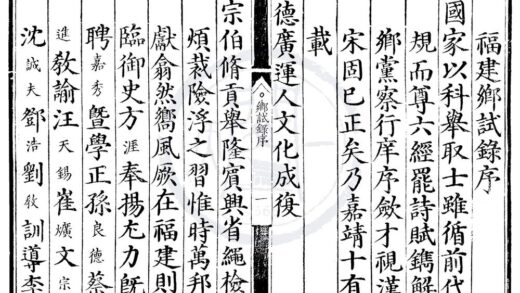 福建鄉試錄序
國家以科舉取士雖循前代
規而尊六經罷詩賦鐫解
鄉黨察行庠序斂才視漢
宋固已正矣乃嘉靖十有
載
鄉試錄序
一
德廣運人文化成復
宗伯脩貢舉隆賓興省繩檢
煩裁險浮之習惟時萬邦
獻翕然嚮風厥在福建則
臨御史方涯奉揚尤力旣
聘嘉秀暨學正孫良德蔡
進教諭汪天錫崔壙文宗
沈誠夫鄧浩劉敎訓導李